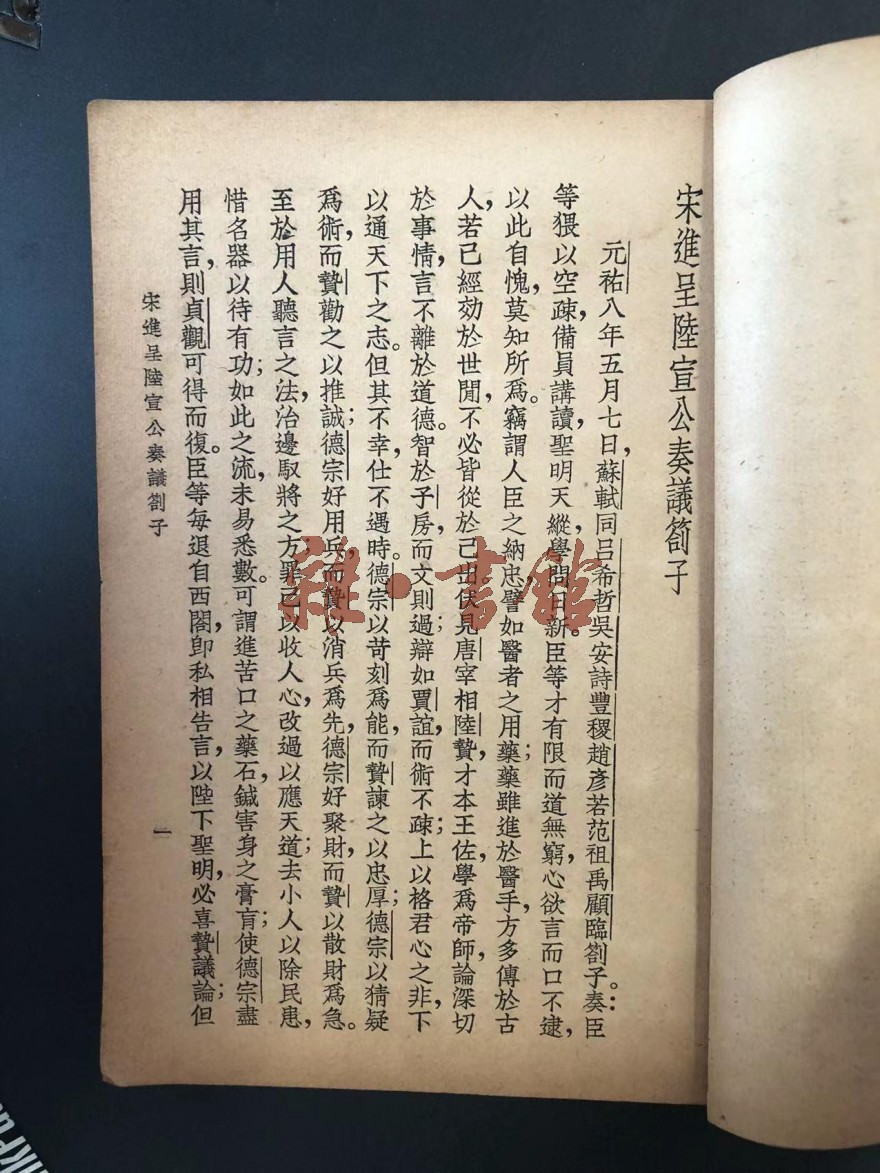 宋進呈陸宣公奏議劄子
元祐八年五月七日，蘇軾同呂希哲吳安詩豐稷趙彥若范祖禹顧臨劄子。奏：臣
等猥以空疎，備員講讀，聖明天縱，學問日新。臣等才有限而道無窮，心欲言而口不逮，
以此自愧，莫知所爲。竊謂人臣之納忠，譬如醫者之用藥；藥雖進於醫手，方多傳於古
人，若已經効於世閒，不必皆從於己出。伏見唐宰相陸贄，才本王佐，學爲帝師，論深切
於事情，言不離於道德。智於子房，而文則過；辯如賈誼，而術不疎；上以格君心之非，下
以通天下之志。但其不幸，仕不遇時。德宗以苛刻爲能，而贄諫之以忠厚；德宗以猜疑
爲術，而贄勸之以推誠；德宗好用兵，而贄以消兵爲先，德宗好聚財，而贄以散財爲急。
至於用人聽言之法，治邊馭將之方，罪己以收人心，改過以應天道；去小人以除民患，
惜名器以待有功；如此之流，未易悉數。可謂進苦口之藥石，鍼害身之膏肓；使德宗盡
用其言，則貞觀可得而復。臣等每退自西閣，卽私相告言，以陛下聖明，必喜贄議論；但
宋進呈陸宣公奏議劄子
一
雜·書館